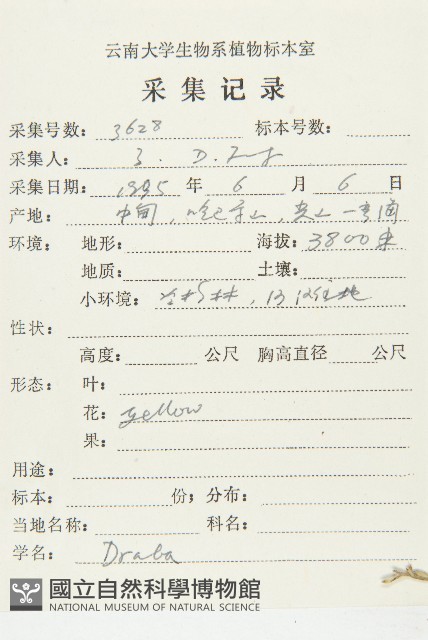 云南大学生物系植物标本室
采集记录
采集号数: 3628 标本号数:
采集人: Z. D.
采集日期: 1995 年 6 月 6 日
产地: 中甸,
环境: 地形: 海拔: 3800 米
地质: 土壤:
小环境: 冷杉林,
性状:
高度: 公尺 胸高直径 公尺
形态: 叶:
花: yellow
果:
用途:
标本: 份; 分布:
当地名称: 科名:
学名: Draba
國立自然科學博物館
NATIONAL MUSEUM OF NATURAL SCIENCE